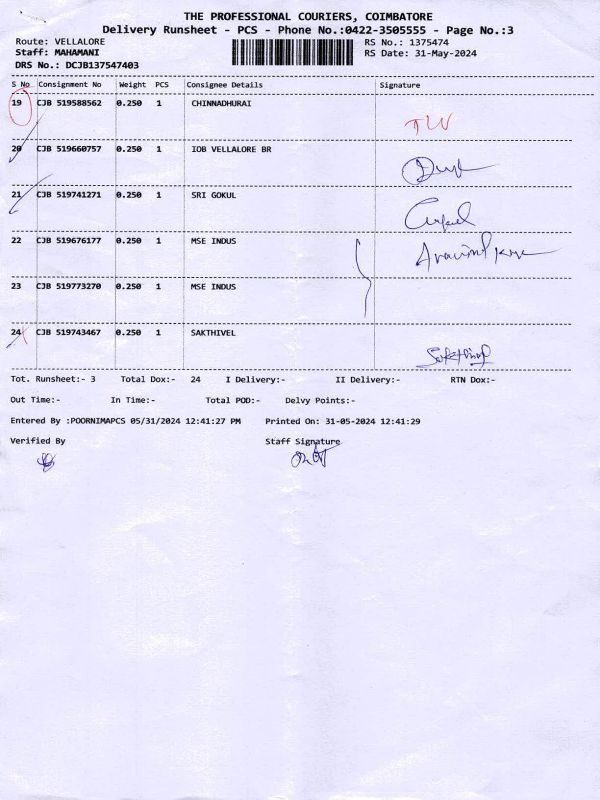 THE PROFESSIONAL COURIERS, COIMBATORE
Delivery Runsheet - PCS - Phone No.:0422-3505555 - Page No.:3
Route: VELLALORE RS No.: 1375474
Staff: MAHAMANI RS Date: 31-May-2024
DRS No.: DCJB137547403
S No Consignment No Weight PCS Consignee Details Signature
19 CJB 519588562 0.250 1 CHINNADHURAI
20 CJB 519660757 0.250 1 IOB VELLALORE BR
21 CJB 519741271 0.250 1 SRI GOKUL
22 CJB 519676177 0.250 1 MSE INDUS
23 CJB 519773270 0.250 1 MSE INDUS
24 CJB 519743467 0.250 1 SAKTHIVEL
Sakthivel
Tot. Runsheet:- 3 Total Dox:- 24 I Delivery:- II Delivery:- RTN Dox:-
Out Time:- In Time:- Total POD:- Delvy Points:-
Entered By :POORNIMAPCS 05/31/2024 12:41:27 PM Printed On: 31-05-2024 12:41:29
Verified By Staff Signature